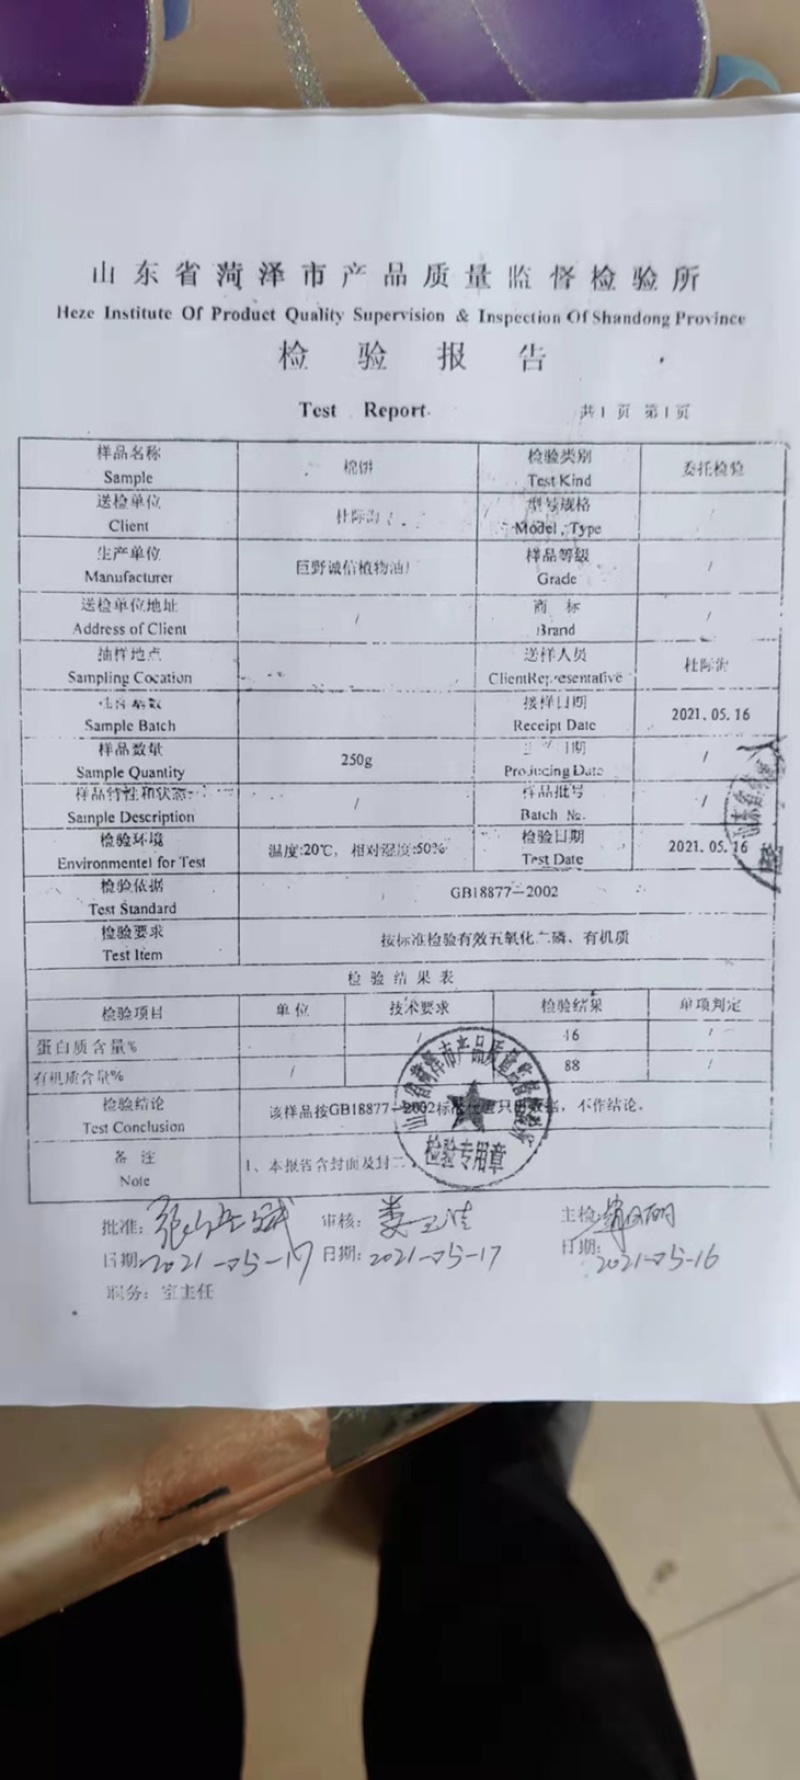 山东省菏泽市产品质量监督检验所
Heze Institute Of Product Quality Supervision & Inspection Of Shandong Province
检验报告
Test Report
共1页 第1页
样品名称 Sample 棉饼 检验类别 Test Kind 委托检验
送检单位 Client 杜际 型号规格 Model、Type /
生产单位 Manufacturer 巨野诚信植物油厂 样品等级 Grade /
送检单位地址 Address of Client / 商标 Brand /
抽样地点 Sampling Cocation 送样人员 ClientRepresentative 杜际
Sample Batch 接样日期 Receipt Date 2021.05.16
样品数量 Sample Quantity 250g 日期 Producing Date /
样品特性和状态 Sample Description / 样品批号 Batch №. /
检验环境 Environmentel for Test 温度:20℃, 相对湿度:50% 检验日期 Test Date 2021.05.16
检验依据 Test Standard GB18877-2002
检验要求 Test Item 按标准检验有效五氧化二磷、有机质
检验结果表
检验项目 单位 技术要求 检验结果 单项判定
蛋白质含量% / 46 /
有机质含量% / 88 /
检验结论 Test Conclusion 该样品按GB18877-2002标准 只 数据, 不作结论。
备注 Note 1、本报告含封面及封二
山东省菏泽市产品质量监督检验所
检验专用章
批准: 审核: 主检:
日期: 2021-05-17 日期: 2021-05-17 日期: 2021-05-16
职务: 室主任